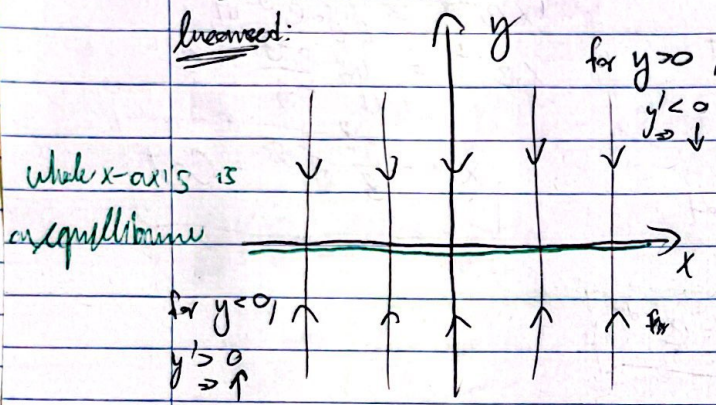 linearized:
y
for y>0,
y'<0
⇒ ↓
whole x-axis is
an equillibrium
x
for y<0,
y'>0
⇒ ↑
for